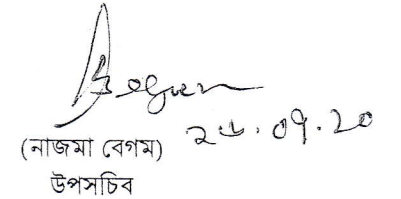 ২৬.০৭.২০
(নাজমা বেগম)
উপসচিব